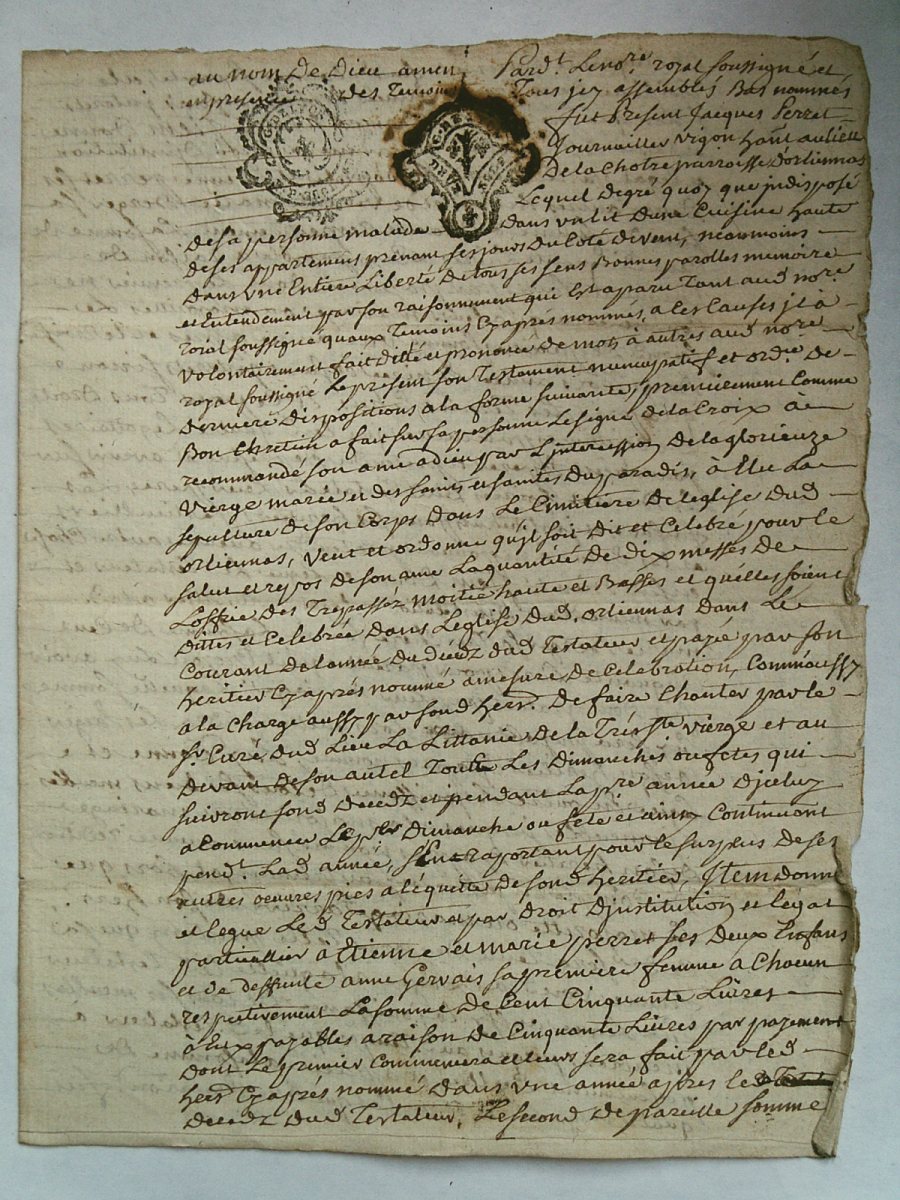 au nom De Dieu amen Pard.t Le no.re royal soussigné et
en presence des Temoins Tous jcy assemblés Bas nommés
fut Present Jacques Perret
Journallier vigon hant au lieu
De la Chotre parroisse d'orliennas
Lequel De gré quoy que jndisposé
de sa personne malade dans vn lit dune Cuisine haute
de ses appartement prenant ses jours Du Coté de vent, neanmoins
dans vne Entiere Liberté De tous ses sens Bonnes parolles memoire
et Entendement par son raisonnement qui Est aparu Tant aud no.re
roial soussigné quaux Temoins Cy aprés nommés, a les Causes jl a
volontairement fait ditté et prononcé de mot, à autres aud no.re
royal soussigné Le present son Testament nuncupatif et ord.re De
derniere Dispositions a la forme suivante, premierement Comme
Bon Chretien a fait sur sa personne Le signe de la Croix à
recommandé son ame a dieu par L'intercession De la glorieuze
vierge marie et des saints et saintes Du paradis, à Elu La
sepulture De son Corps dans Le Cimitiere De leglise Dud
orliennas, veut et ordonne qu'jl soit Dit et Celebré pour le
salut et repos De son ame La quantité De dix messes De
Loffice Des Trepassez moitié haute et Basses et quelles soient
Dittes et Celebrée dans Leglise Dud. orliennas dans Le
Courant de lannée Du décéz dud Testateur et payé par son
heritier Cy aprés nommé a mesure de Celebration, Comm'aussy
a la Charge aussy par sond her.r De faire Chanter par le
s.r Curé Dud Lieu La Littanie De la Trés s.te vierge et au
devant De son autel Toute Les Dimanches ou fetes qui
suivront sond Decedz et pendant La p.re année D'jceluy
a Commencer Le p.er Dimanche ou fete et ainsy Continuant
pend.t Lad année, s'En raportant pour le surplus De ses
autres oeuvres pies a l'équitté De sond heritier, Jtem donne
et legue Led Testateur et par Droit D'jnstitution et légat
particullier à Etienne et marie perret ses Deux Enfans
et de deffunte anne Gervais sa premiere femme a Chacun
respectivement La somme De Cent Cinquante Livres
à Eux payables a raison de Cinquante Livres par payement
dont Le premier Commencera et leurs sera fait par led
her.r Cy aprés nommé dans vne année aprés le
decedz dud Testateur, Le second De pareille somme